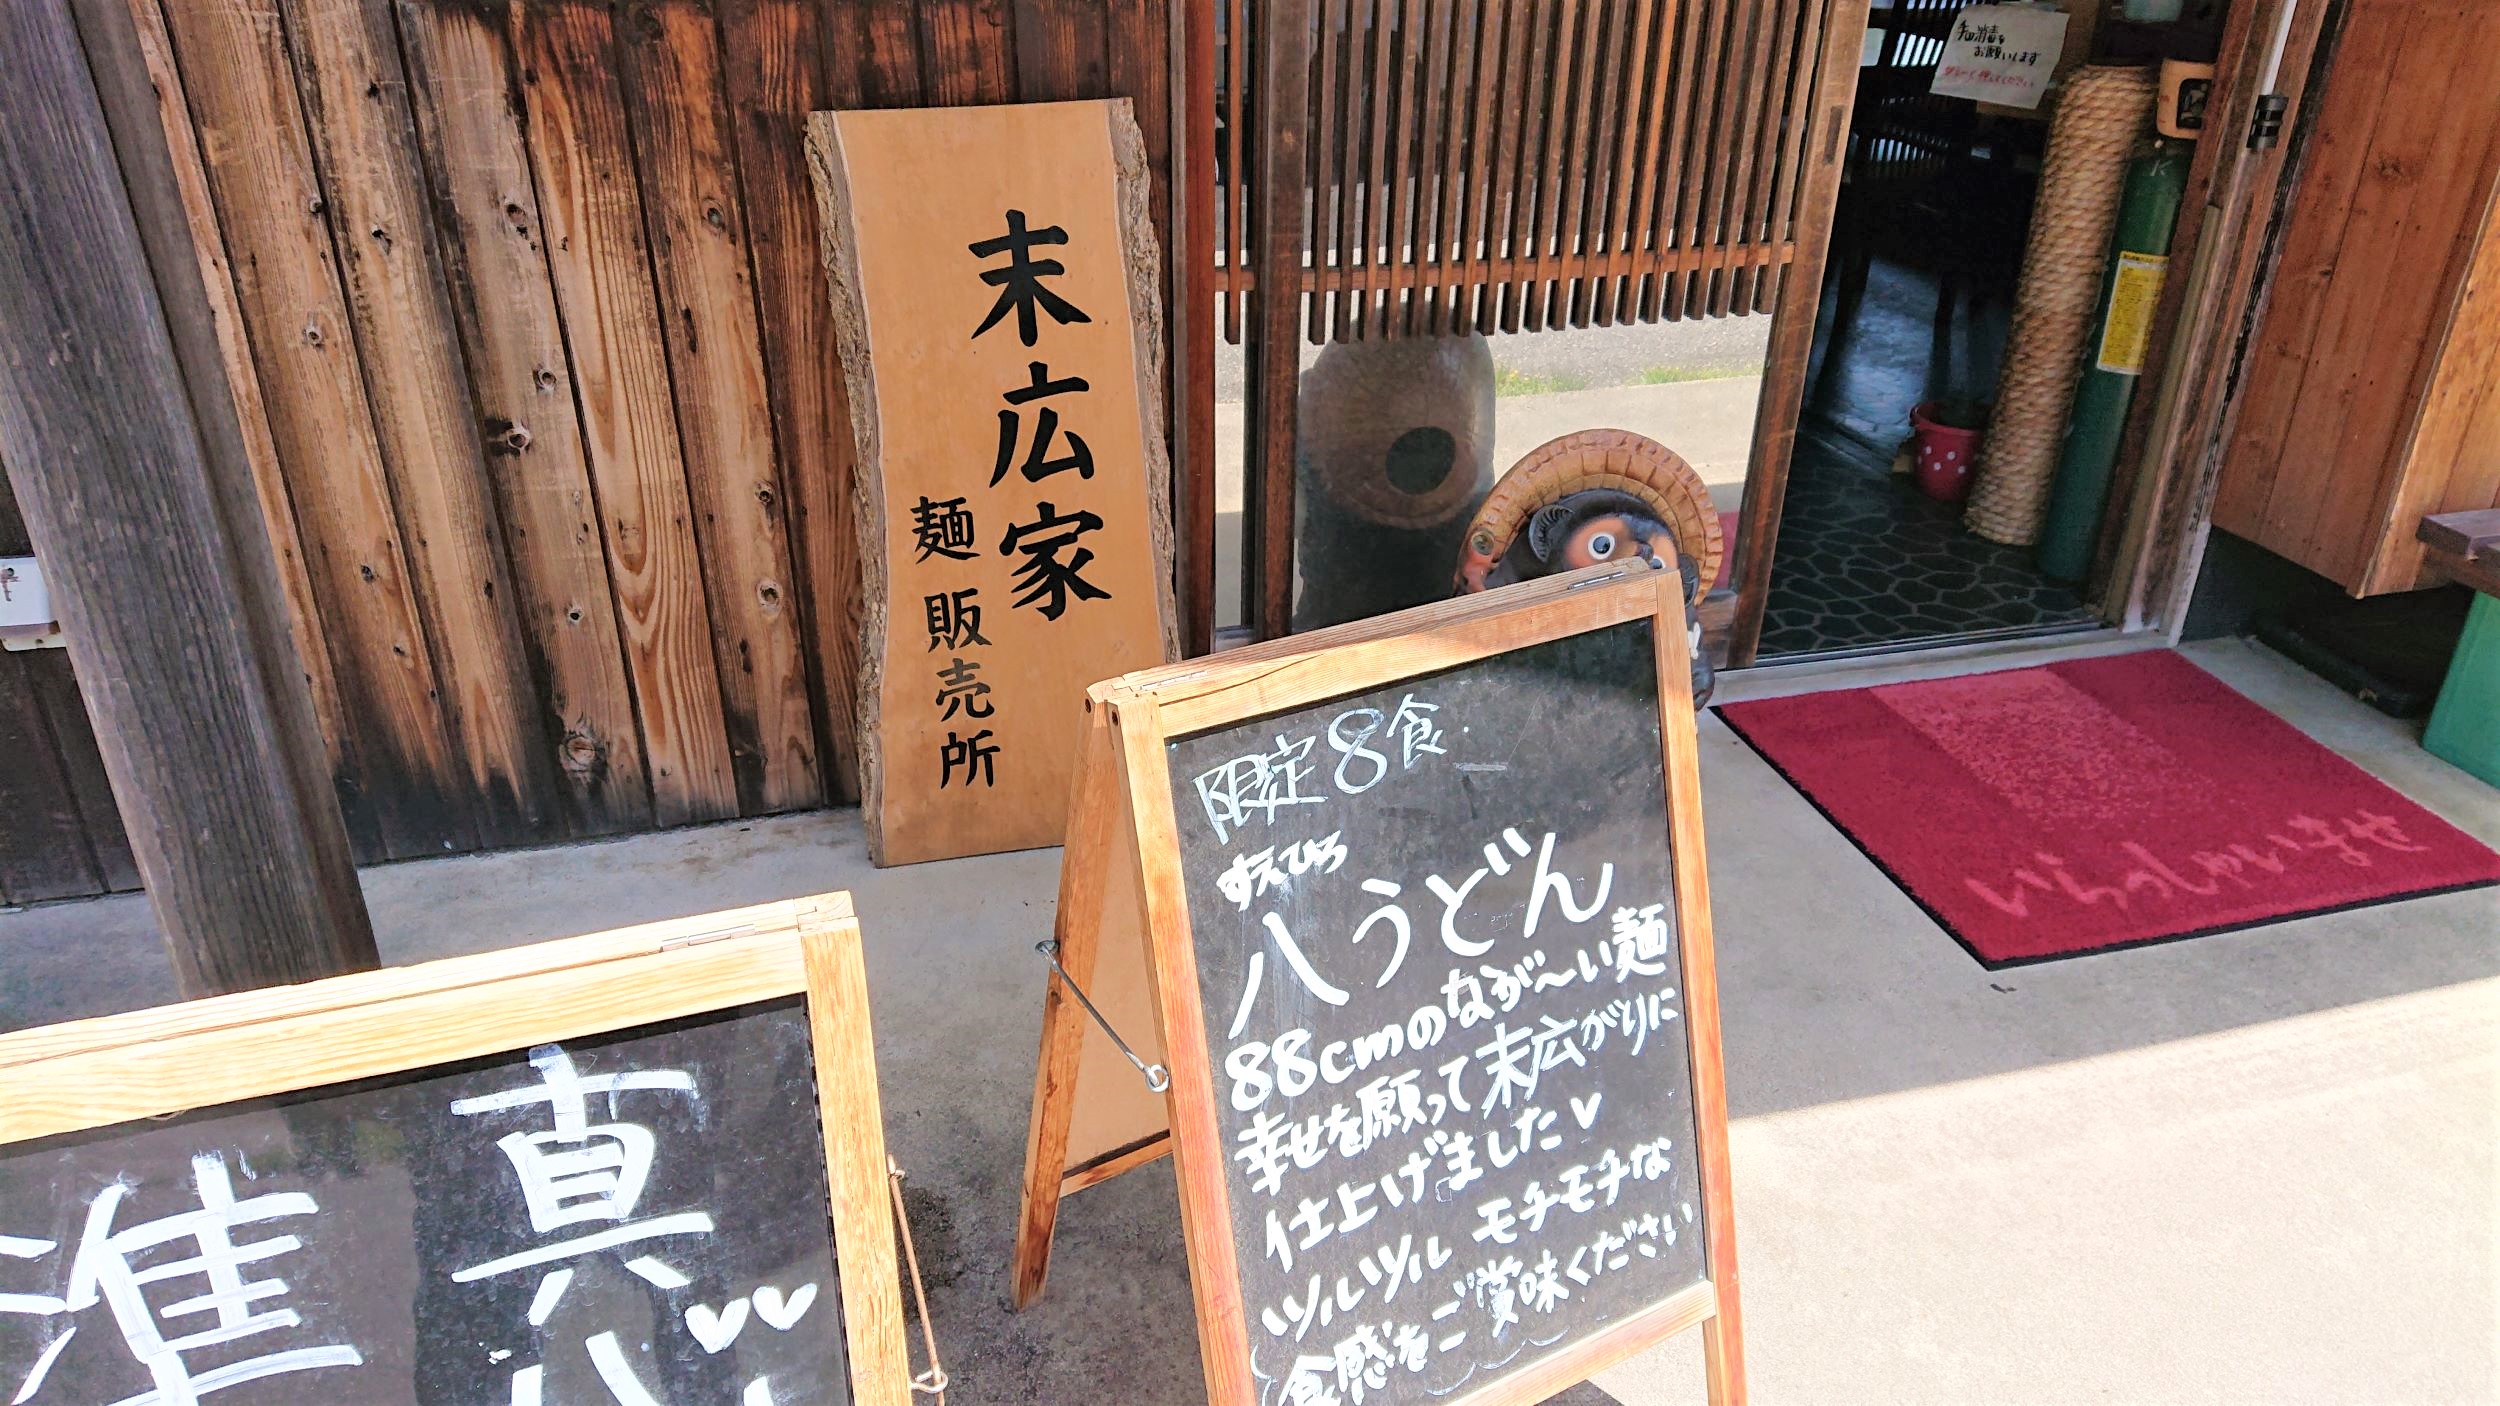 末広家
麺販売所
限定8食
すえひろ
八うどん
88cmのなが〜い麺
幸せを願って末広がりに
仕上げました♥
ツルツル モチモチな
食感をご賞味ください
いらっしゃいませ
手の消毒を
お願いします
真
準